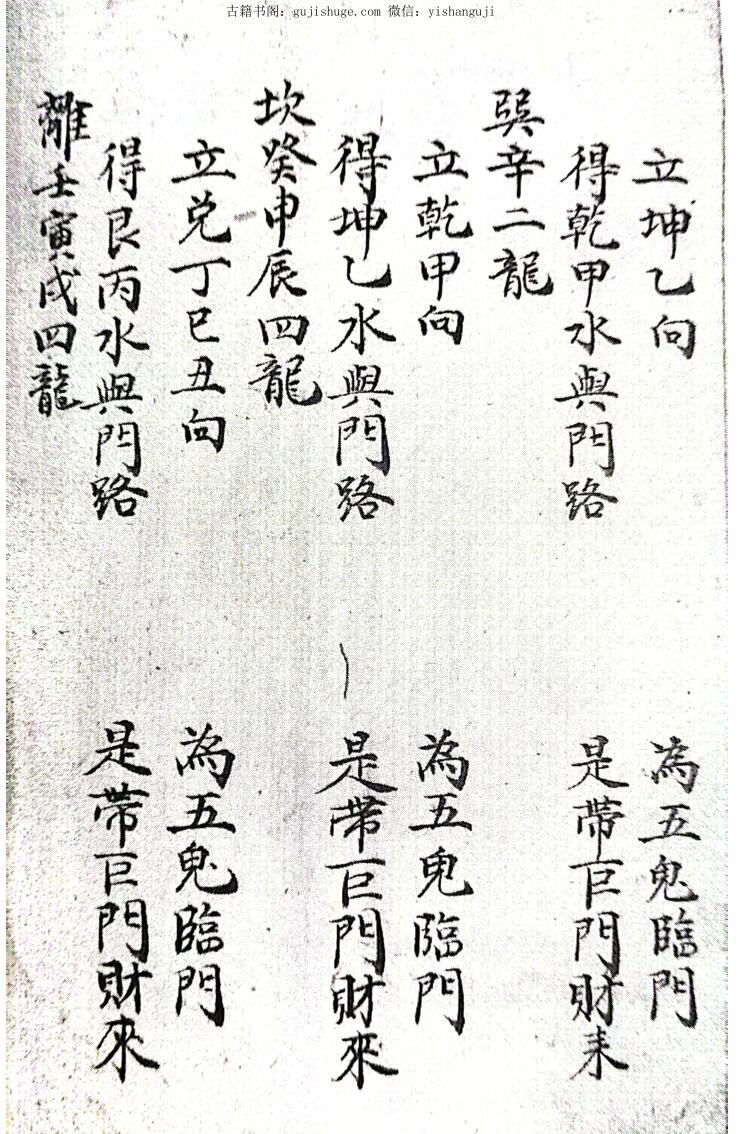 古籍书阁：gujishuge.com 微信：yishanguji
立坤乙向 為五鬼臨門
得乾甲水與門路 是帶巨門財来
巽辛二龍
立乾甲向 為五鬼臨門
得坤乙水與門路 是帶巨門財來
坎癸申辰四龍
立兑丁巳丑向 為五鬼臨門
得艮丙水與門路 是帶巨門財來
離壬寅戌四龍